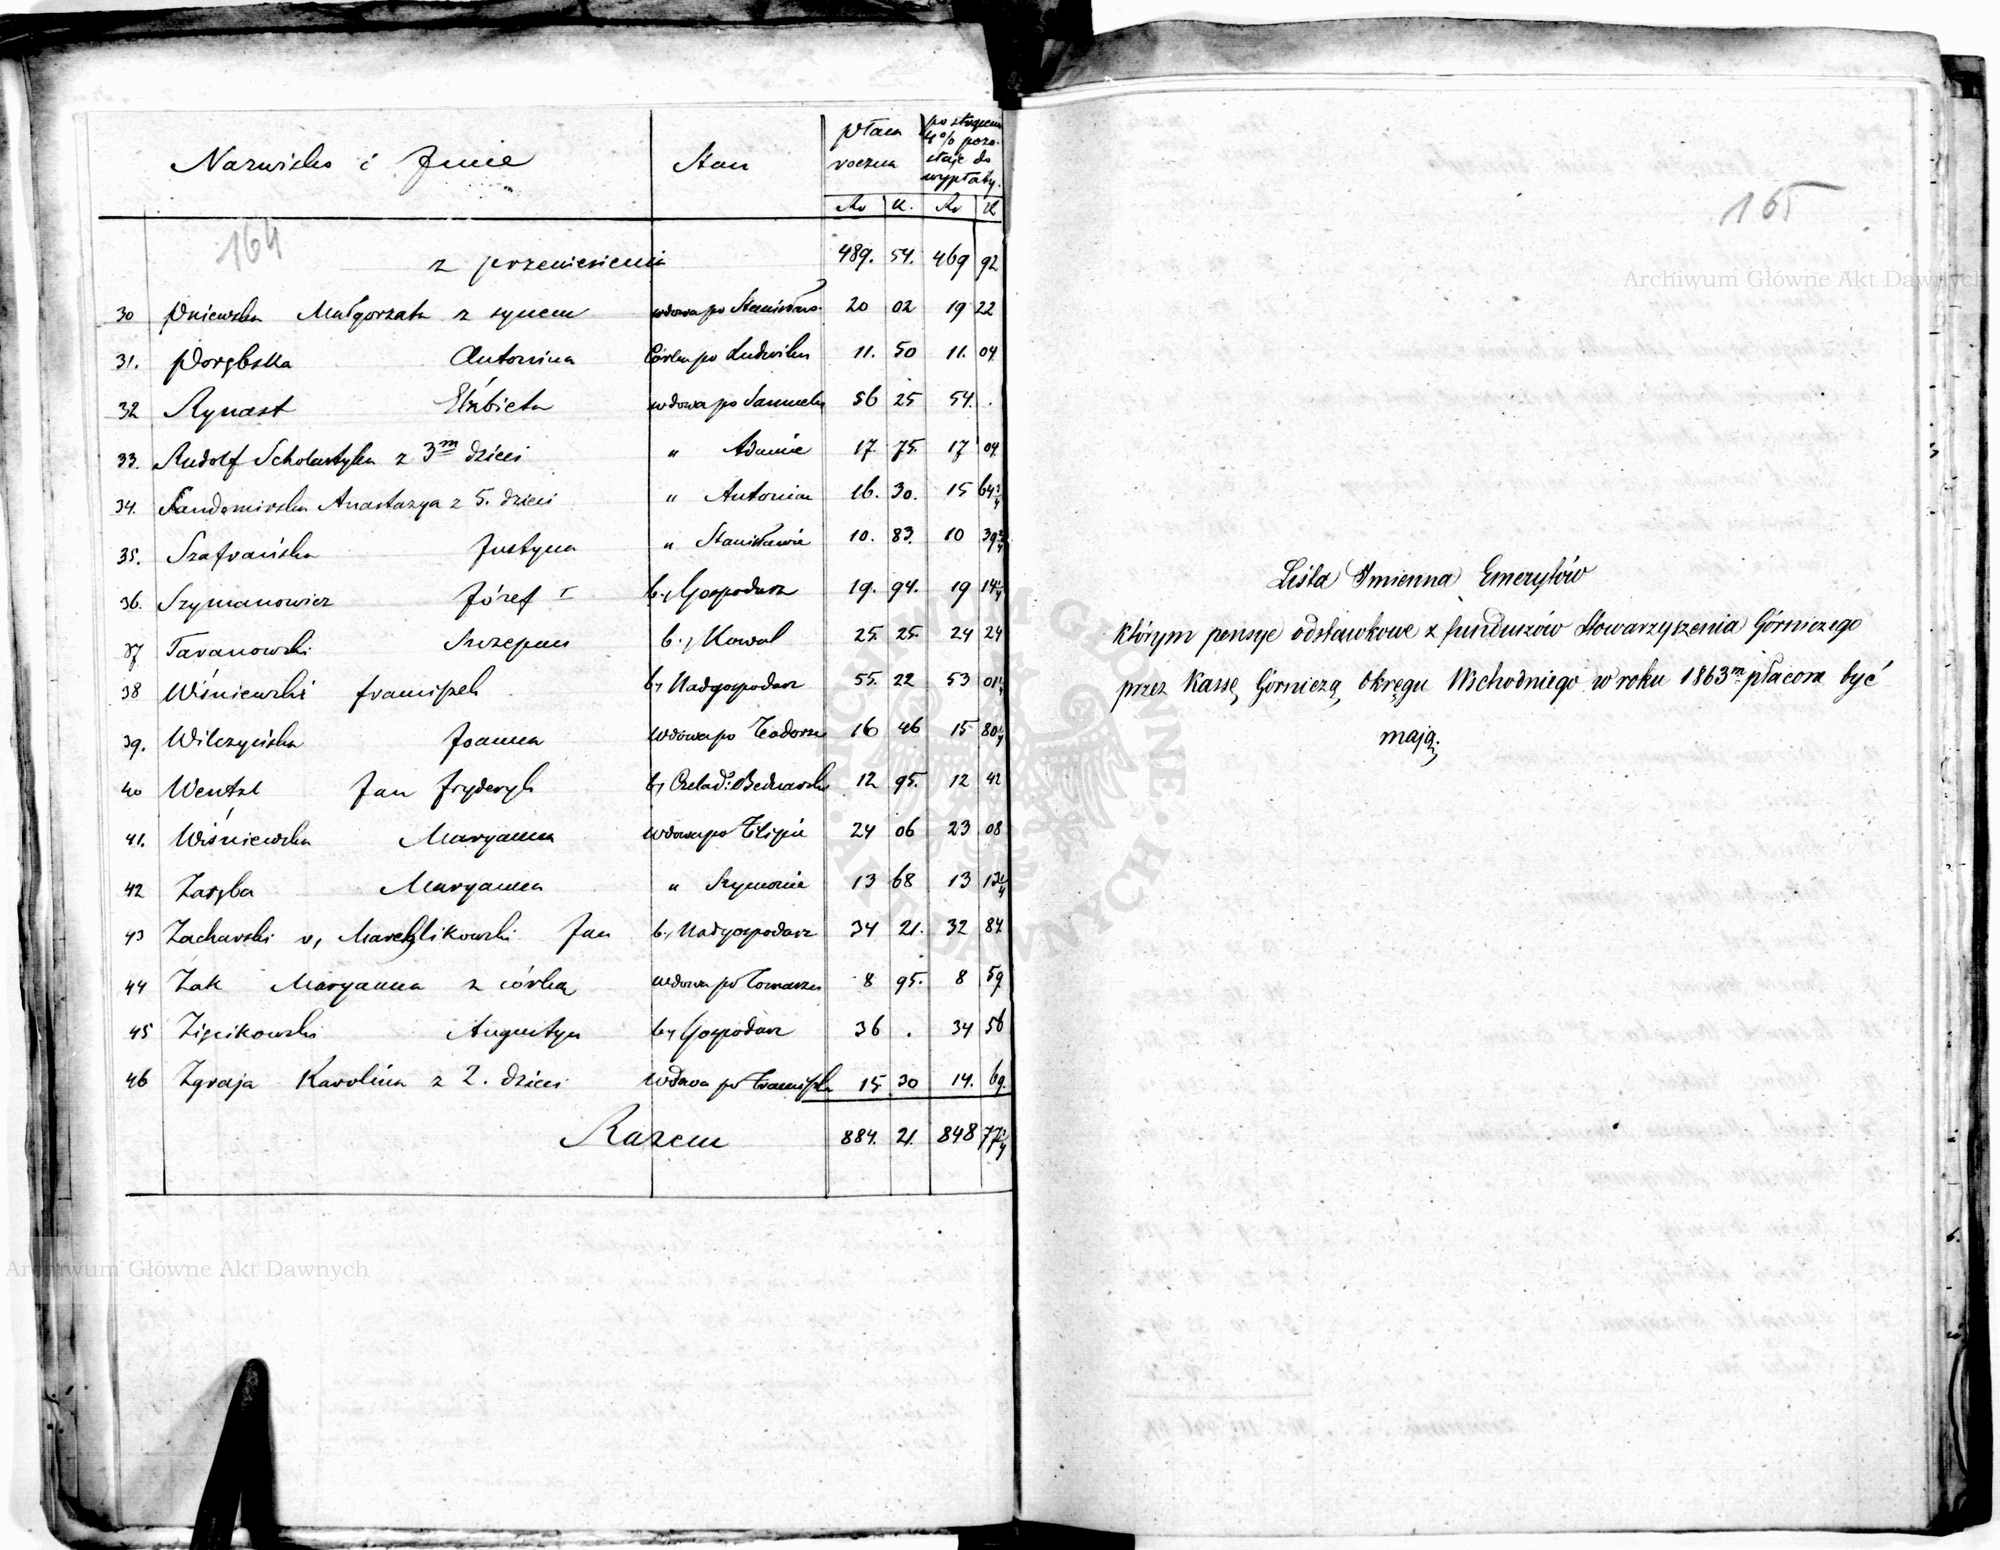 Nazwisko i Imie Stan płaca roczna po strąceniu 4% pozostaje do wypłaty.
Rs K. Rs K
164
z przeniesienia 489. 54. 469 92
30 Pniewska Małgorzata z synem wdowa po Stanisławie 20 02 19 22
31. Porębska Antonina Córka po Ludwiku 11. 50 11. 04
32 Rynast Elżbieta wdowa po Samuelu 56 25 54. .
33. Rudolf Scholastyka z 3m dzieci " Adamie 17. 75. 17 04
34. Sandomirska Anastazya z 5. dzieci " Antonim 16. 30. 15 64 3/4
35. Szafrańska Justyna " Stanisławie 10. 83. 10 39 3/4
36. Szymanowicz Józef I b., Gospodarz 19. 94. 19 14 1/4
37 Taranowski Szczepan b., Kowal 25. 25. 24 24
38 Wiśniewski franciszek b., Nadgospodarz 55. 22 53 01 1/4
39. Wilczyńska Joanna wdowa po Teodorze 16 46 15 80 1/4
40 Wentzl Jan fryderyk b., Czelad: Bednarski 12 95. 12 42
41. Wiśniewska Maryanna wdowa po Filipie 24 06 23 08
42 Zaręba Maryanna " Szymonie 13 68 13 13 1/4
43 Zacharski v, Marchlikowski Jan b., Nadgospodarz 34 21. 32 84
44 Żak Maryanna z córką wdowa po Tomaszu 8 95. 8 59
45 Zięcikowski Augustyn b., Gospodarz 36 . 34 56
46 Zgraja Karolina z 2. dzieci wdowa po Franciszku 15 30 14. 69.
Razem 884. 21. 848 77 1/4
Archiwum Główne Akt Dawnych
165
Archiwum Główne Akt Dawnych
Lista Imienna Emerytów
którym pensye odstawkowe z funduszów Stowarzyszenia Górniczego
przez Kassę Górniczą Okręgu Wschodniego w roku 1863m płacone być
mają.